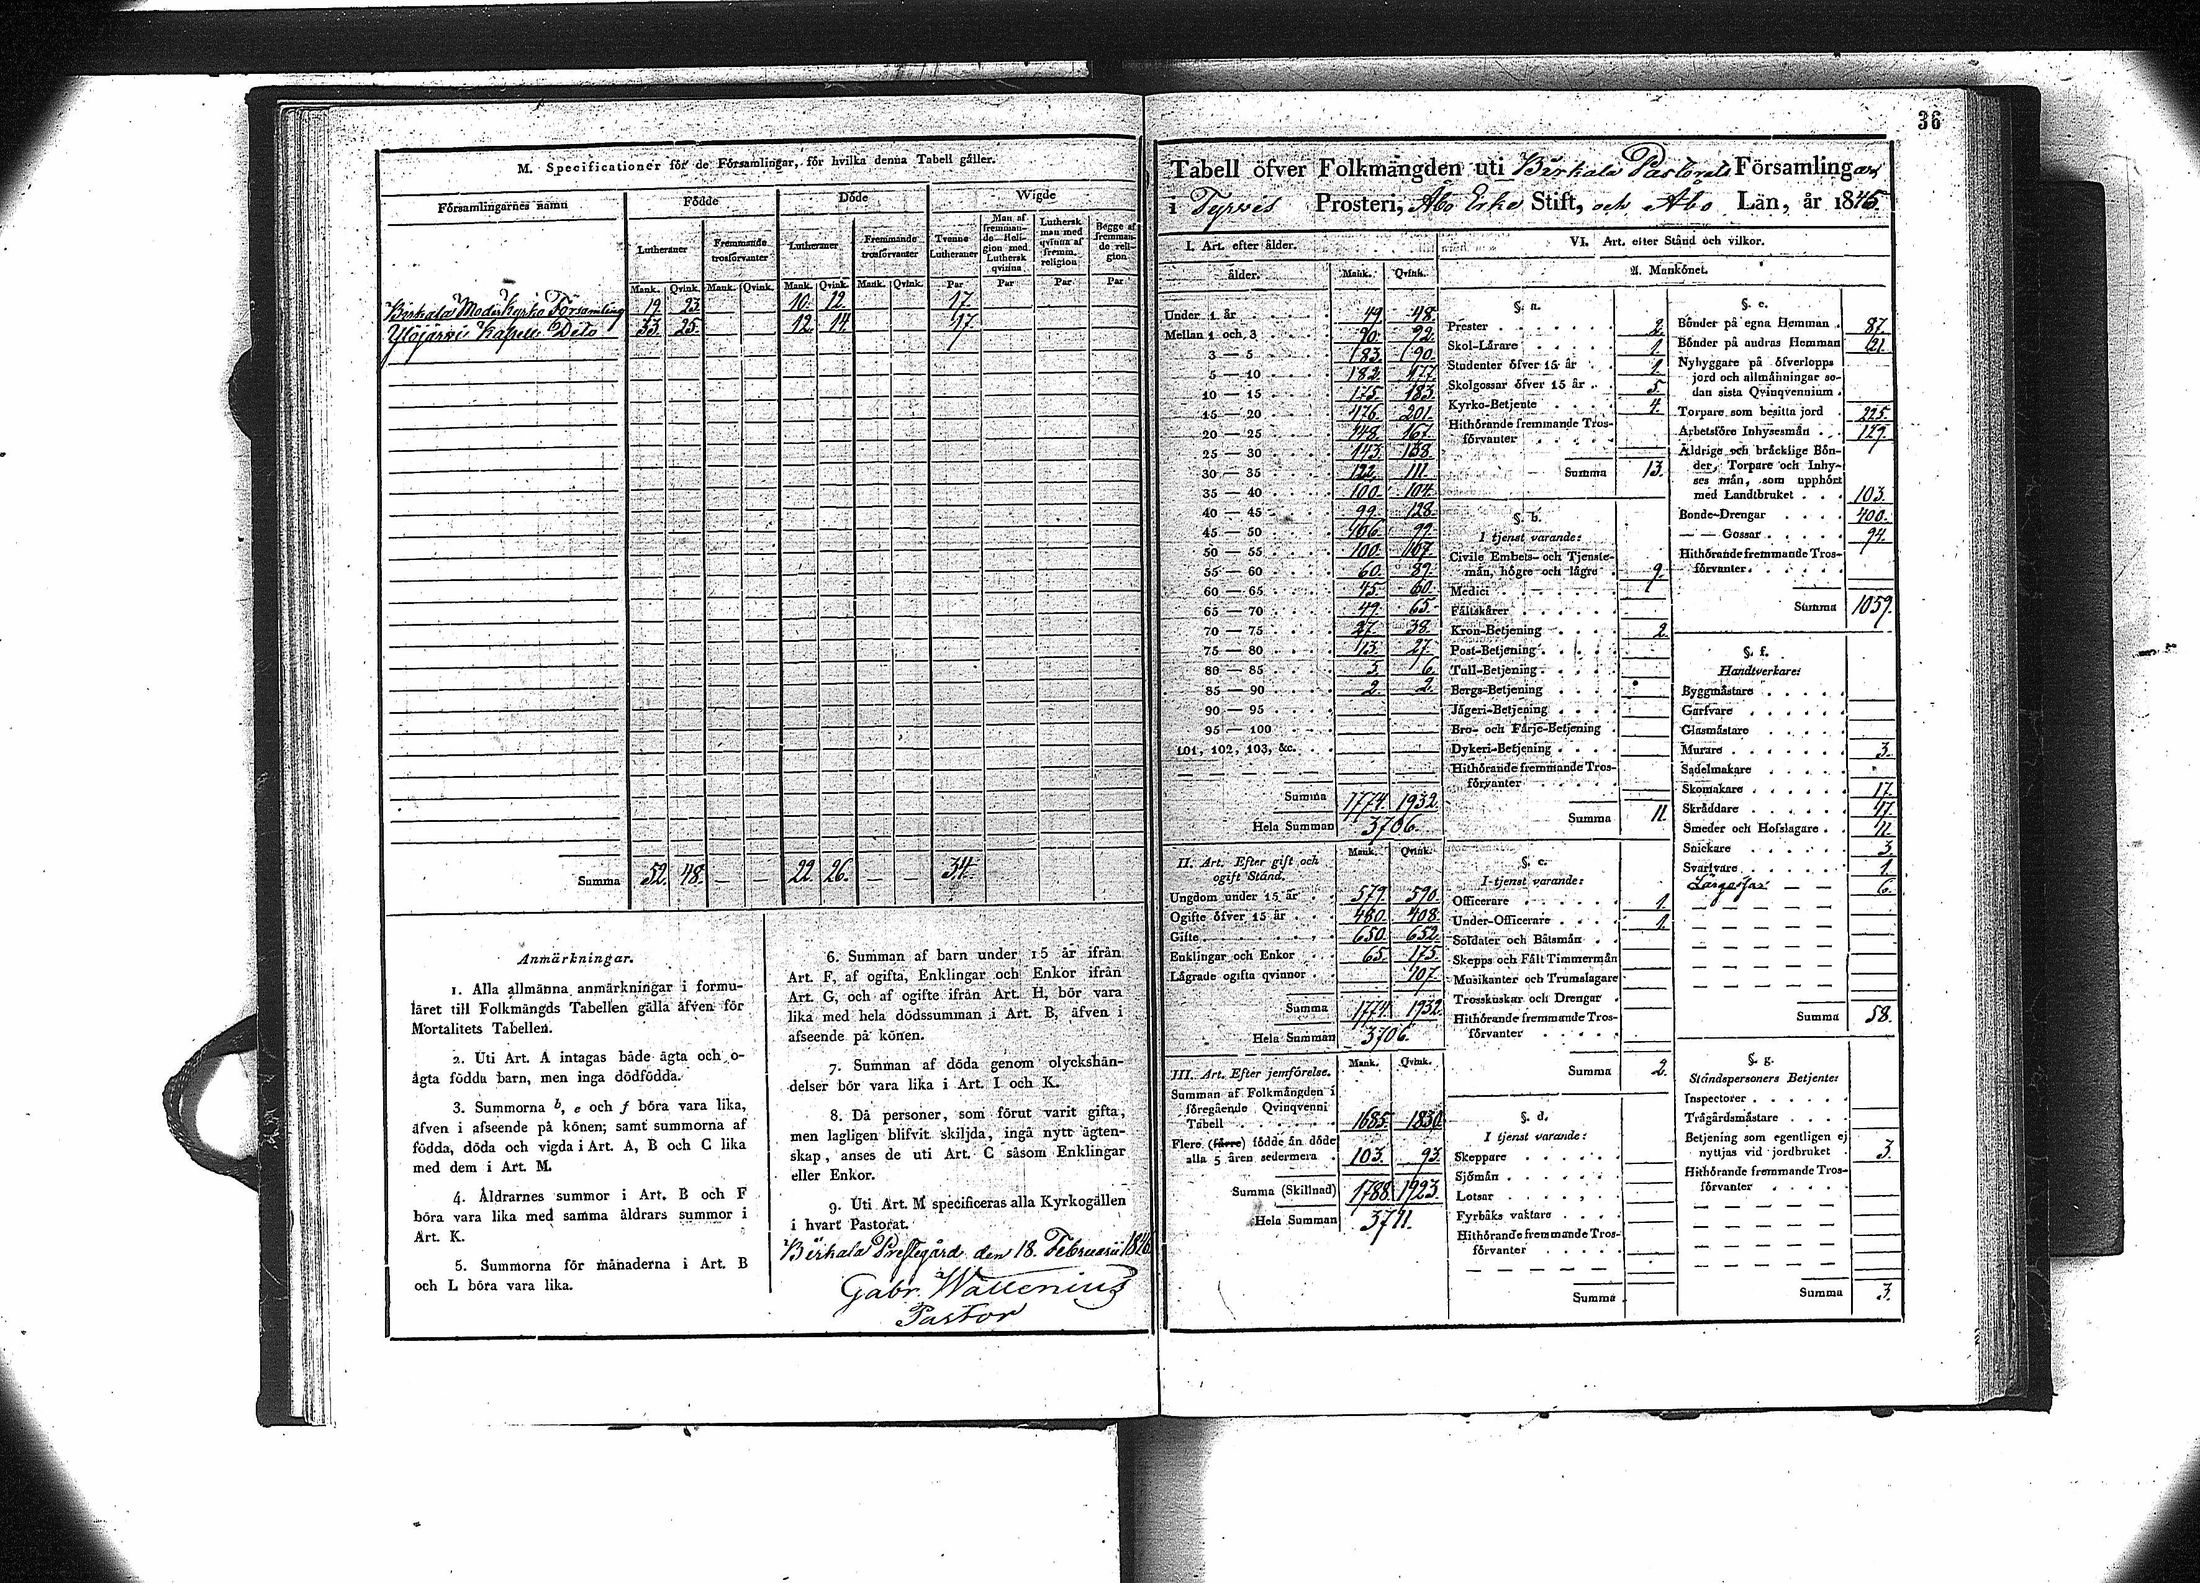 M. Specificationer för de Församlingar, för hvilka denna Tabell gäller.
Församlingarnes namn Födde Döde Wigde
Lutheraner Fremmande trosförvanter Lutheraner Fremmande trosförvanter Tvenne Lutheraner Man af fremmande Religion med Luthersk qvinna Luthersk man med qvinna af fremm. religion Begge af fremmande religion
Mank. Qvink. Mank. Qvink. Mank. Qvink. Mank. Qvink. Par Par Par Par
Birkala Moder Kyrko Församling 19. 23. 10. 12. 17.
Ylöjärvi Kapells Dito 33. 25. 12. 14. 17.
Summa 52. 48. — — 22. 26. — — 34.
Anmärkningar.
1. Alla allmänna anmärkningar i formu-
läret till Folkmängds Tabellen gälla äfven för
Mortalitets Tabellen.
2. Uti Art. A intagas både ägta och o-
ägta födda barn, men inga dödfödda.
3. Summorna b, e och f böra vara lika,
äfven i afseende på könen; samt summorna af
födda, döda och vigda i Art. A, B och C lika
med dem i Art. M.
4. Åldrarnes summor i Art. B och F
böra vara lika med samma åldrars summor i
Art. K.
5. Summorna för månaderna i Art. B
och L böra vara lika.
6. Summan af barn under 15 år ifrån
Art. F, af ogifta, Enklingar och Enkor ifrån
Art. G, och af ogifte ifrån Art. H, bör vara
lika med hela dödssumman i Art. B, äfven i
afseende på könen.
7. Summan af döda genom olyckshän-
delser bör vara lika i Art. I och K.
8. Då personer, som förut varit gifta,
men lagligen blifvit skiljda, ingå nytt ägten-
skap, anses de uti Art. C såsom Enklingar
eller Enkor.
9. Uti Art. M specificeras alla Kyrkogällen
i hvart Pastorat.
Birkala Prestegård den 18. Februarii 1846.
Gabr. Wallenius
Pastor
36
Tabell öfver Folkmängden uti Birkala Pastorats Församlingar
i Tyrvis Prosteri, Åbo Erke Stift, och Åbo Län, år 1845.
I. Art. efter ålder.
ålder. Mank. Qvink.
Under 1 år 49. 48.
Mellan 1 och 3 90. 92.
3 — 5 183. 190.
5 — 10 182. 177.
10 — 15 175. 183.
15 — 20 176. 201.
20 — 25 148. 167.
25 — 30 143. 138.
30 — 35 122. 111.
35 — 40 100. 104.
40 — 45 99. 128.
45 — 50 106. 99.
50 — 55 100. 107.
55 — 60 60. 89.
60 — 65 45. 60.
65 — 70 49. 65.
70 — 75 27. 38.
75 — 80 13. 27.
80 — 85 5. 6.
85 — 90 2. 2.
90 — 95
95 — 100
101, 102, 103, &c.
Summa 1774. 1932.
Hela Summan 3706.
II. Art. Efter gift och
ogift Stånd. Mank. Qvink.
Ungdom under 15 år 579. 590.
Ogifte öfver 15 år 480. 408.
Gifte 650. 652.
Enklingar och Enkor 65. 175.
Lägrade ogifta qvinnor 107.
Summa 1774. 1932.
Hela Summan 3706.
III. Art. Efter jemförelse. Mank. Qvink.
Summan af Folkmängden i
föregående Qvinqvenni
Tabell 1685. 1830.
Flere (färre) födde än döde
alla 5 åren sedermera 103. 93.
Summa (Skillnad) 1788. 1923.
Hela Summan 3711.
VI. Art. efter Stånd och vilkor.
A. Mankönet.
§. a.
Prester 2.
Skol-Lärare 1.
Studenter öfver 15 år 1.
Skolgossar öfver 15 år 5.
Kyrko-Betjente 4.
Hithörande fremmande Tros-
förvanter
Summa 13.
§. b.
I tjenst varande:
Civile Embets- och Tjenste-
män, högre och lägre 9.
Medici
Fältskärer
Kron-Betjening 2.
Post-Betjening
Tull-Betjening
Bergs-Betjening
Jägeri-Betjening
Bro- och Färje-Betjening
Dykeri-Betjening
Hithörande fremmande Tros-
förvanter
Summa 11.
§. c.
I tjenst varande:
Officerare 1.
Under-Officerare 1.
Soldater och Båtsmän
Skepps och Fält Timmermän
Musikanter och Trumslagare
Trosskuskar och Drengar
Hithörande fremmande Tros-
förvanter
Summa 2.
§. d.
I tjenst varande:
Skeppare
Sjömän
Lotsar
Fyrbåks vaktare
Hithörande fremmande Tros-
förvanter
Summa
§. e.
Bönder på egna Hemman 87.
Bönder på andras Hemman 21.
Nybyggare på öfverlopps
jord och allmänningar se-
dan sista Qvinqvennium
Torpare som besitta jord 225.
Arbetsföre Inhysesmän 129.
Åldrige och bräcklige Bön-
der, Torpare och Inhy-
ses män, som upphört
med Landtbruket 103.
Bonde-Drengar 400.
— — Gossar 94.
Hithörande fremmande Tros-
förvanter
Summa 1059.
§. f.
Handtverkare:
Byggmästare
Garfvare
Glasmästare
Murare 3.
Sadelmakare
Skomakare 17.
Skräddare 17.
Smeder och Hofslagare 11.
Snickare 3.
Svarfvare 1.
Lärgossar 6.
Summa 58.
§. g.
Ståndspersoners Betjente:
Inspectorer
Trägårdsmästare
Betjening som egentligen ej
nyttjas vid jordbruket 3.
Hithörande fremmande Tros-
förvanter
Summa 3.